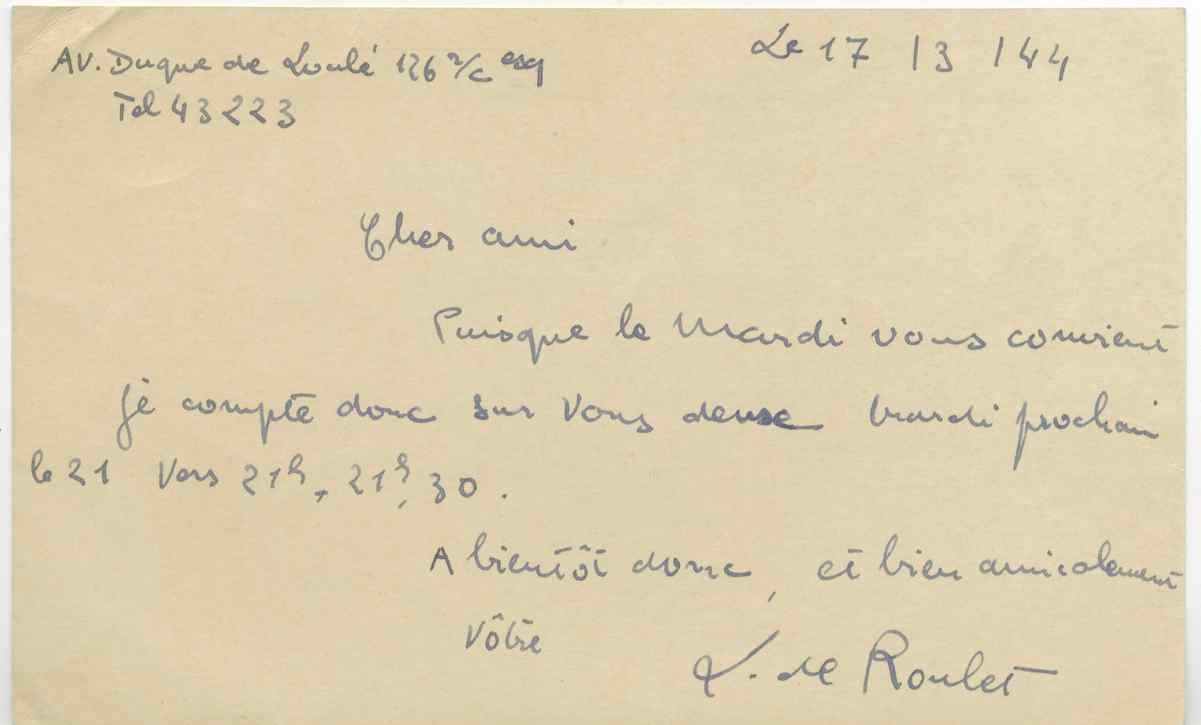 AV. Duque de Loulé 126 r/c esq
Le 17 / 3 / 44
Tel 43223
Cher ami
Puisque le Mardi vous convient
je compte donc sur vous deux Mardi prochain
le 21 vers 21h, 21h,30.
A bientôt donc, et bien amicalement
vôtre
de Roulet